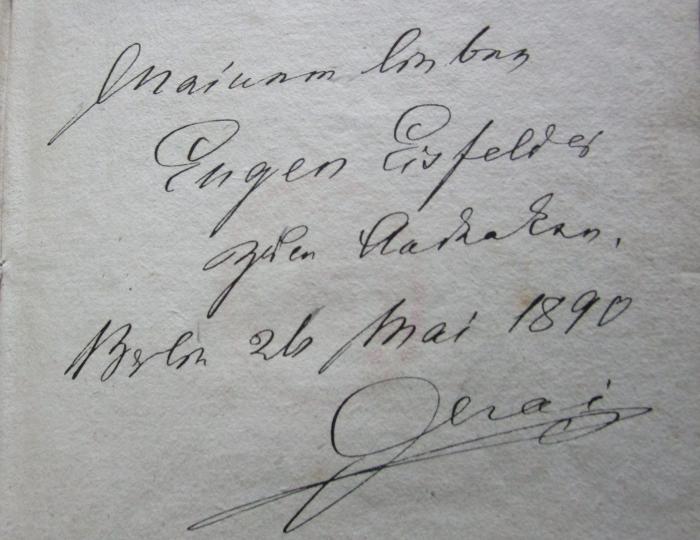 Meinem lieben
Eugen Eisfelder
zum Andenken.
Berlin 26 Mai 1890